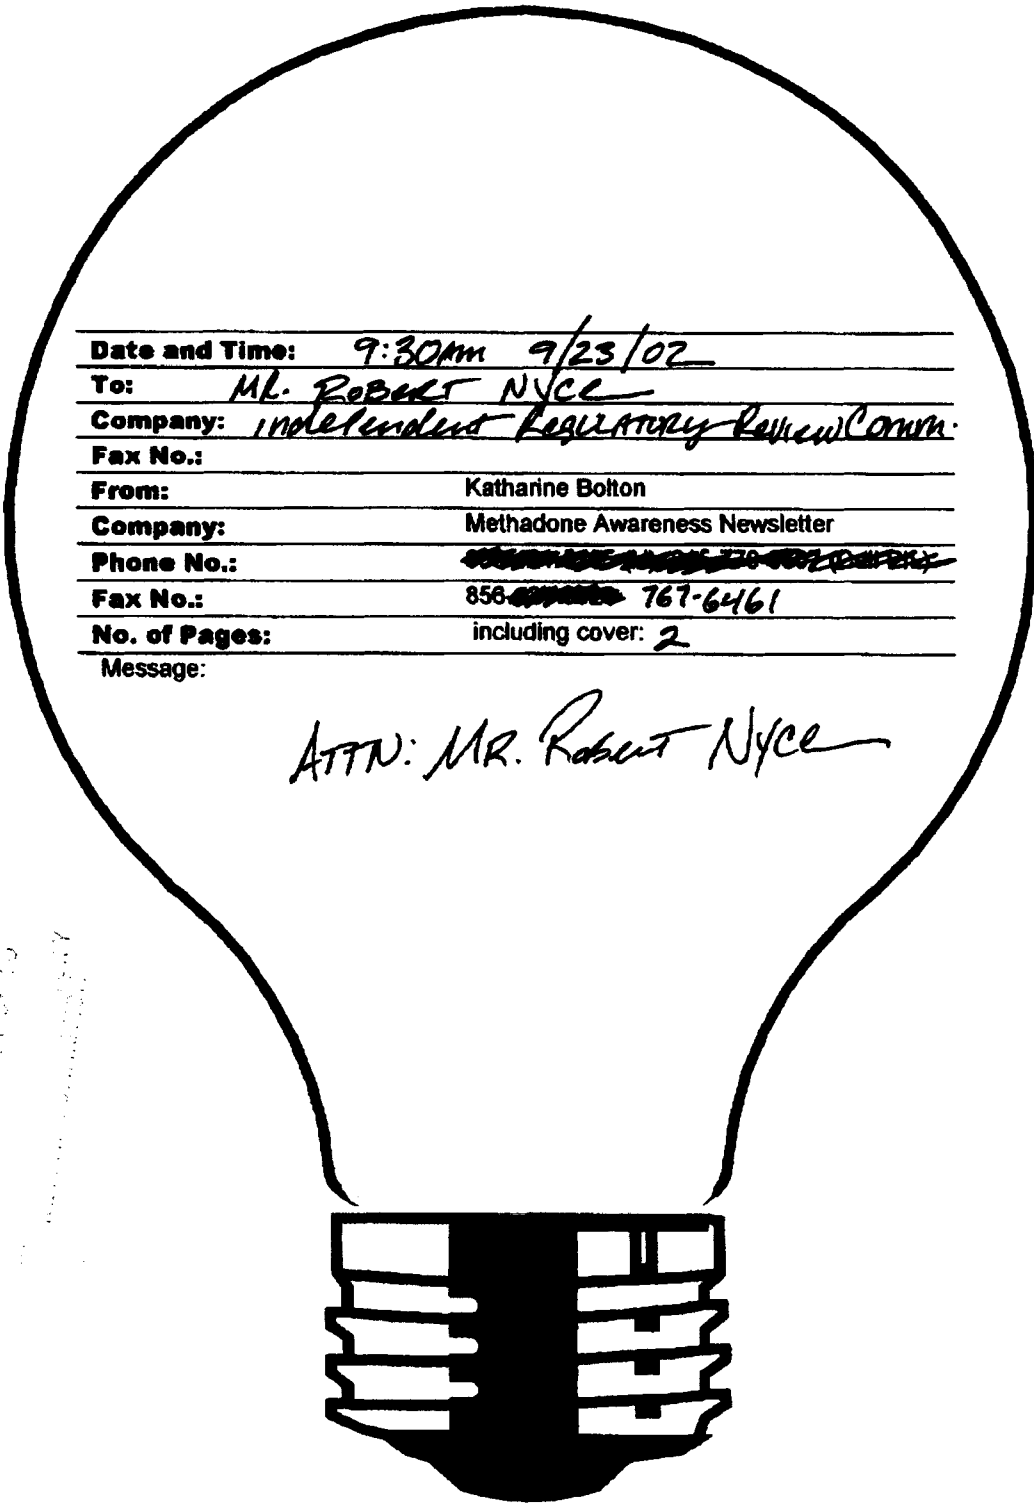 Date and Time: 9:30AM 9/23/02
To: MR. ROBERT NYCE
Company: Independent Regulatory Review Comm.
Fax No.:
From: Katharine Bolton
Company: Methadone Awareness Newsletter
Phone No.:
Fax No.: 856- 767-6461
No. of Pages: including cover: 2
Message:
ATTN: MR. Robert Nyce